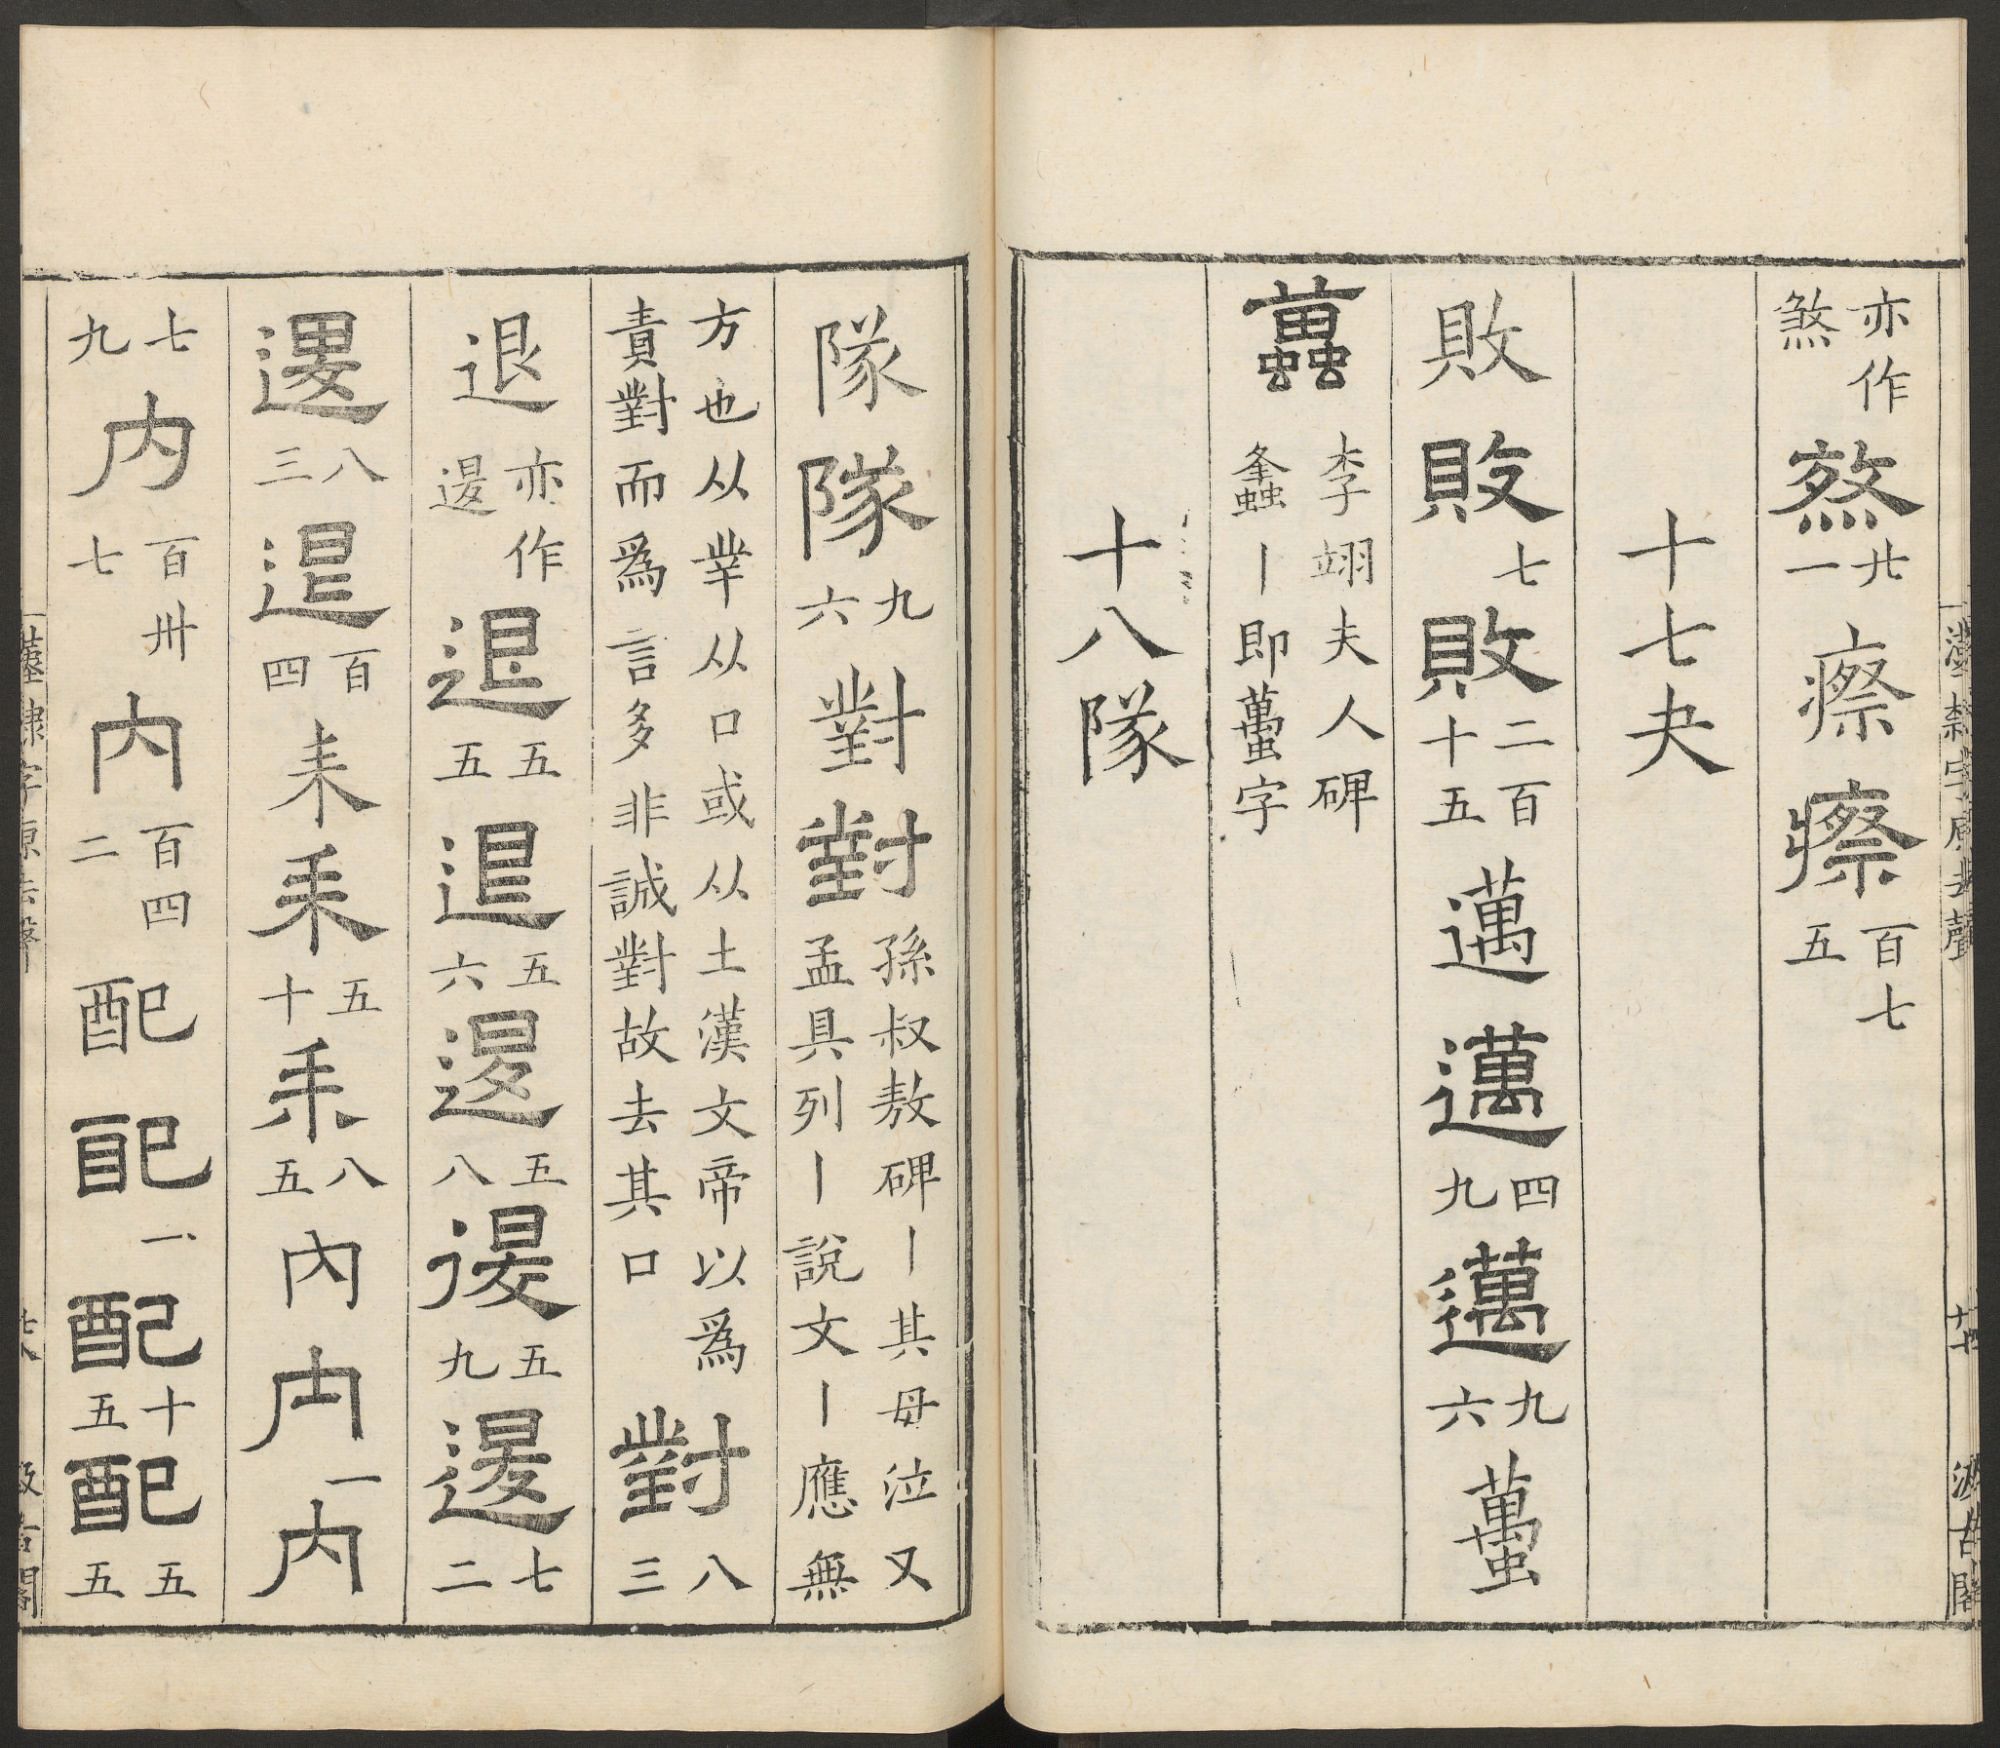 亦作煞 煞 廿一 瘵 瘵 百七五
十七夬
敗 敗 七 敗 二百十五 邁 邁 四九 邁 九六 蠆
蠆 李翊夫人碑螽蠆丨即蠆字
十八隊
隊 隊 九六 對 對 孫叔敖碑丨其母泣又孟具列丨說文丨應無
方也从丵从口或从士漢文帝以爲責對而爲言多非誠對故去其口 對 八三
退 亦作𨓤 退 五五 退 五六 𨓤 五八 𢓴 五九 𨓤 七二
𨓤 八三 退 百四 耒 耒 五十 耒 八五 內 內 一 內
七九 內 百卅七 內 百四二 配 配 一 配 十五 配 五五
漢隸字原去聲
汲古閣